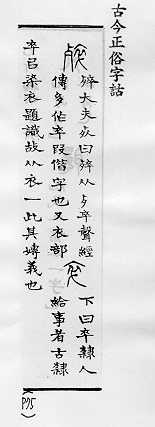 古今正俗字詁
𣨛
𣨛大夫死曰𣨛从歺卒聲經
傳多作卒叚借字也又衣部
卒
下曰卒隸人
給事者古隸
卒㠯染衣題識故从衣一此其嫥義也
(P95)